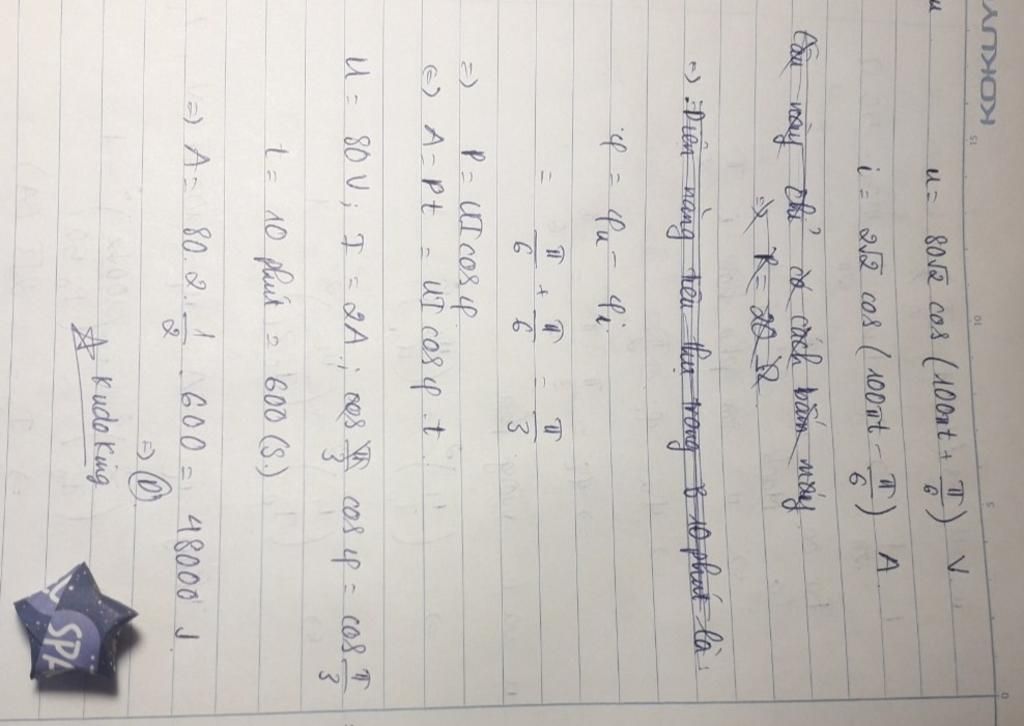 KOKUYO
15 10 5 0
u
u = 80√2 cos (100πt + π/6) V
i = 2√2 cos (100πt - π/6) A
này chỉ có cách bấm máy
=> R = 20 Ω
=> Điện năng tiêu thụ trong 8 10 phút là:
φ = φu - φi
= π/6 + π/6 = π/3
=> P = UI cos φ
(=) A = Pt = UI cos φ . t
U = 80V; I = 2A; cos π/3 cos φ = cos π/3
t = 10 phút = 600 (s.)
=> A = 80.2. 1/2 . 600 = 48000 J
=> D
☆ Kudoking
SPA